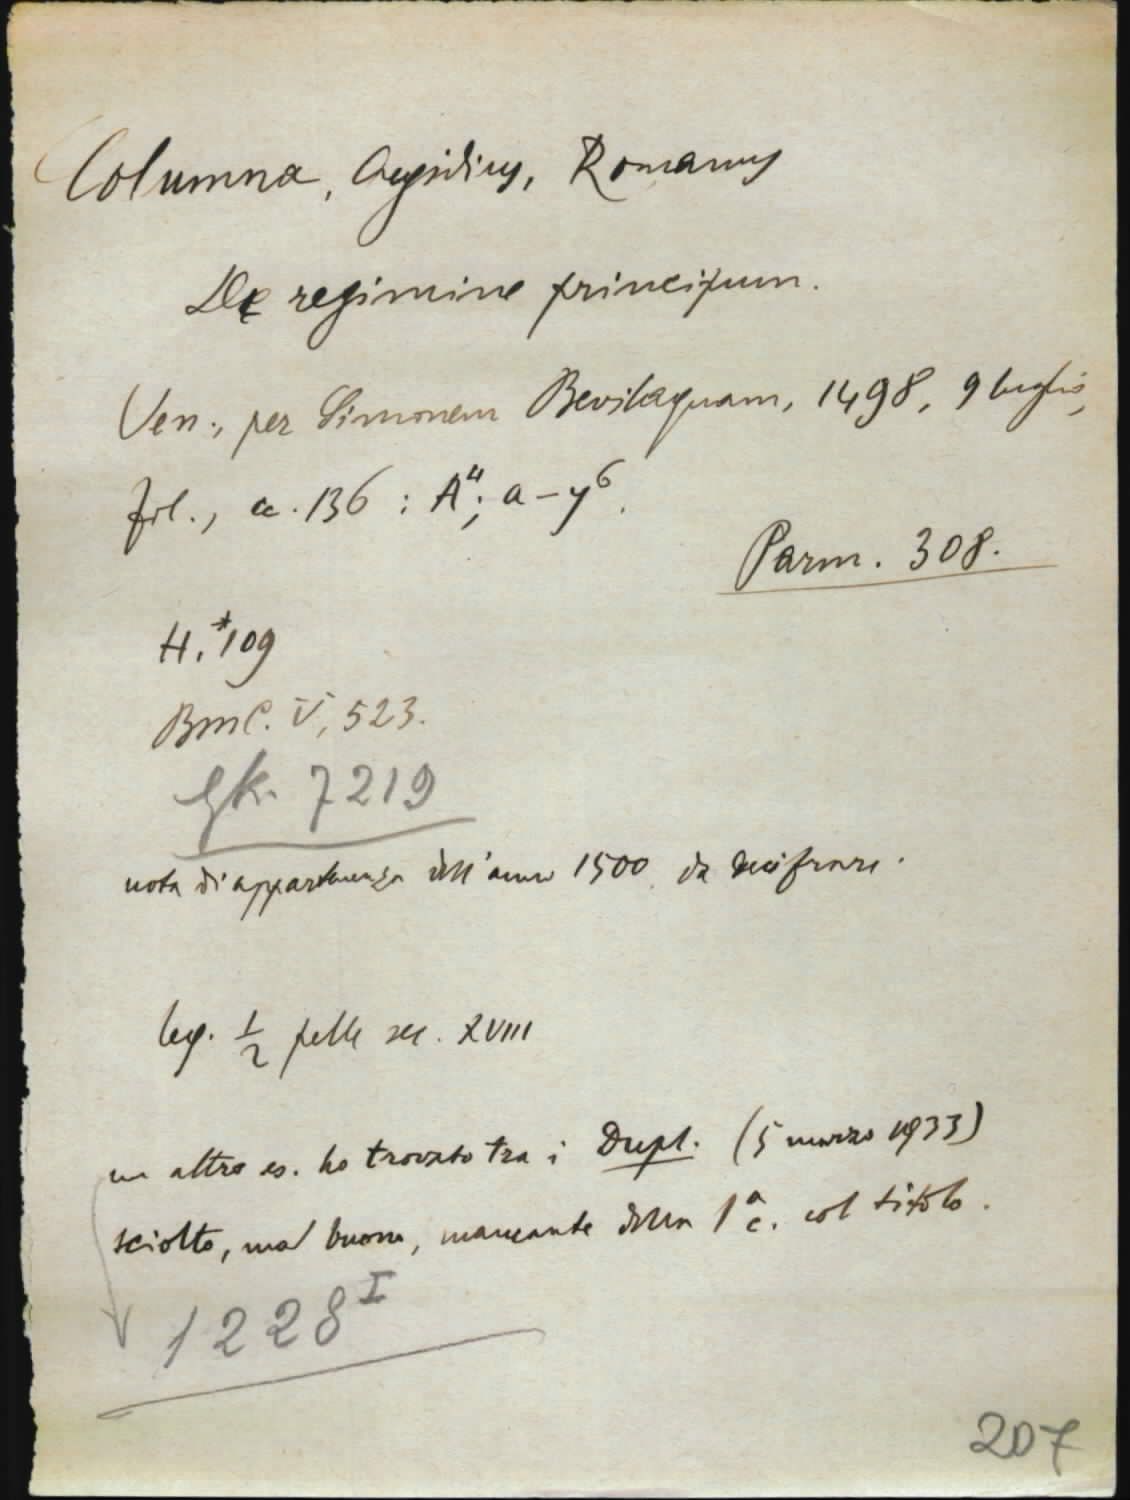 Columna, Aegidius, Romanus
De regimine principum.
Ven., per Simonem Bevilaquam, 1498, 9 luglio,
fol., cc. 136 : A⁴; a–y⁶.
Parm. 308.
H. *109
BMC. V, 523.
GK. 7219
nota di appartenenza dell'anno 1500 da decifrare.
leg. 1/2 pelle sec. XVIII
un altro es. ho trovato tra i Dupl. (5 marzo 1933)
sciolto, ma buono, mancante della 1ª c. col titolo.
1228ᴵ
207